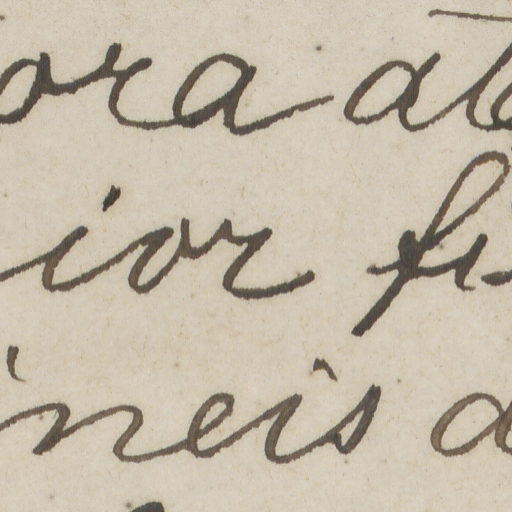 ora at
ior fi
ineis d